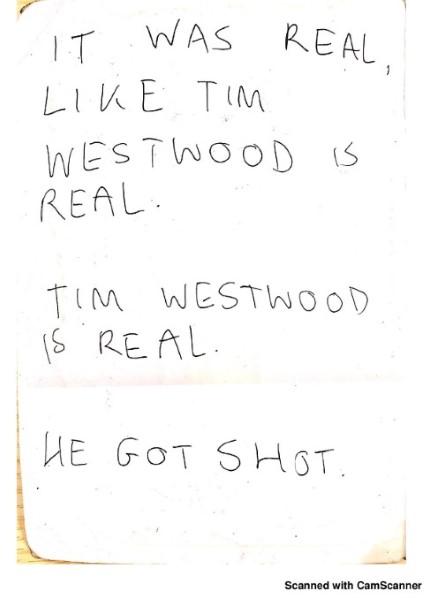 IT WAS REAL,
LIKE TIM
WESTWOOD IS
REAL.
TIM WESTWOOD
IS REAL.
HE GOT SHOT.
Scanned with CamScanner